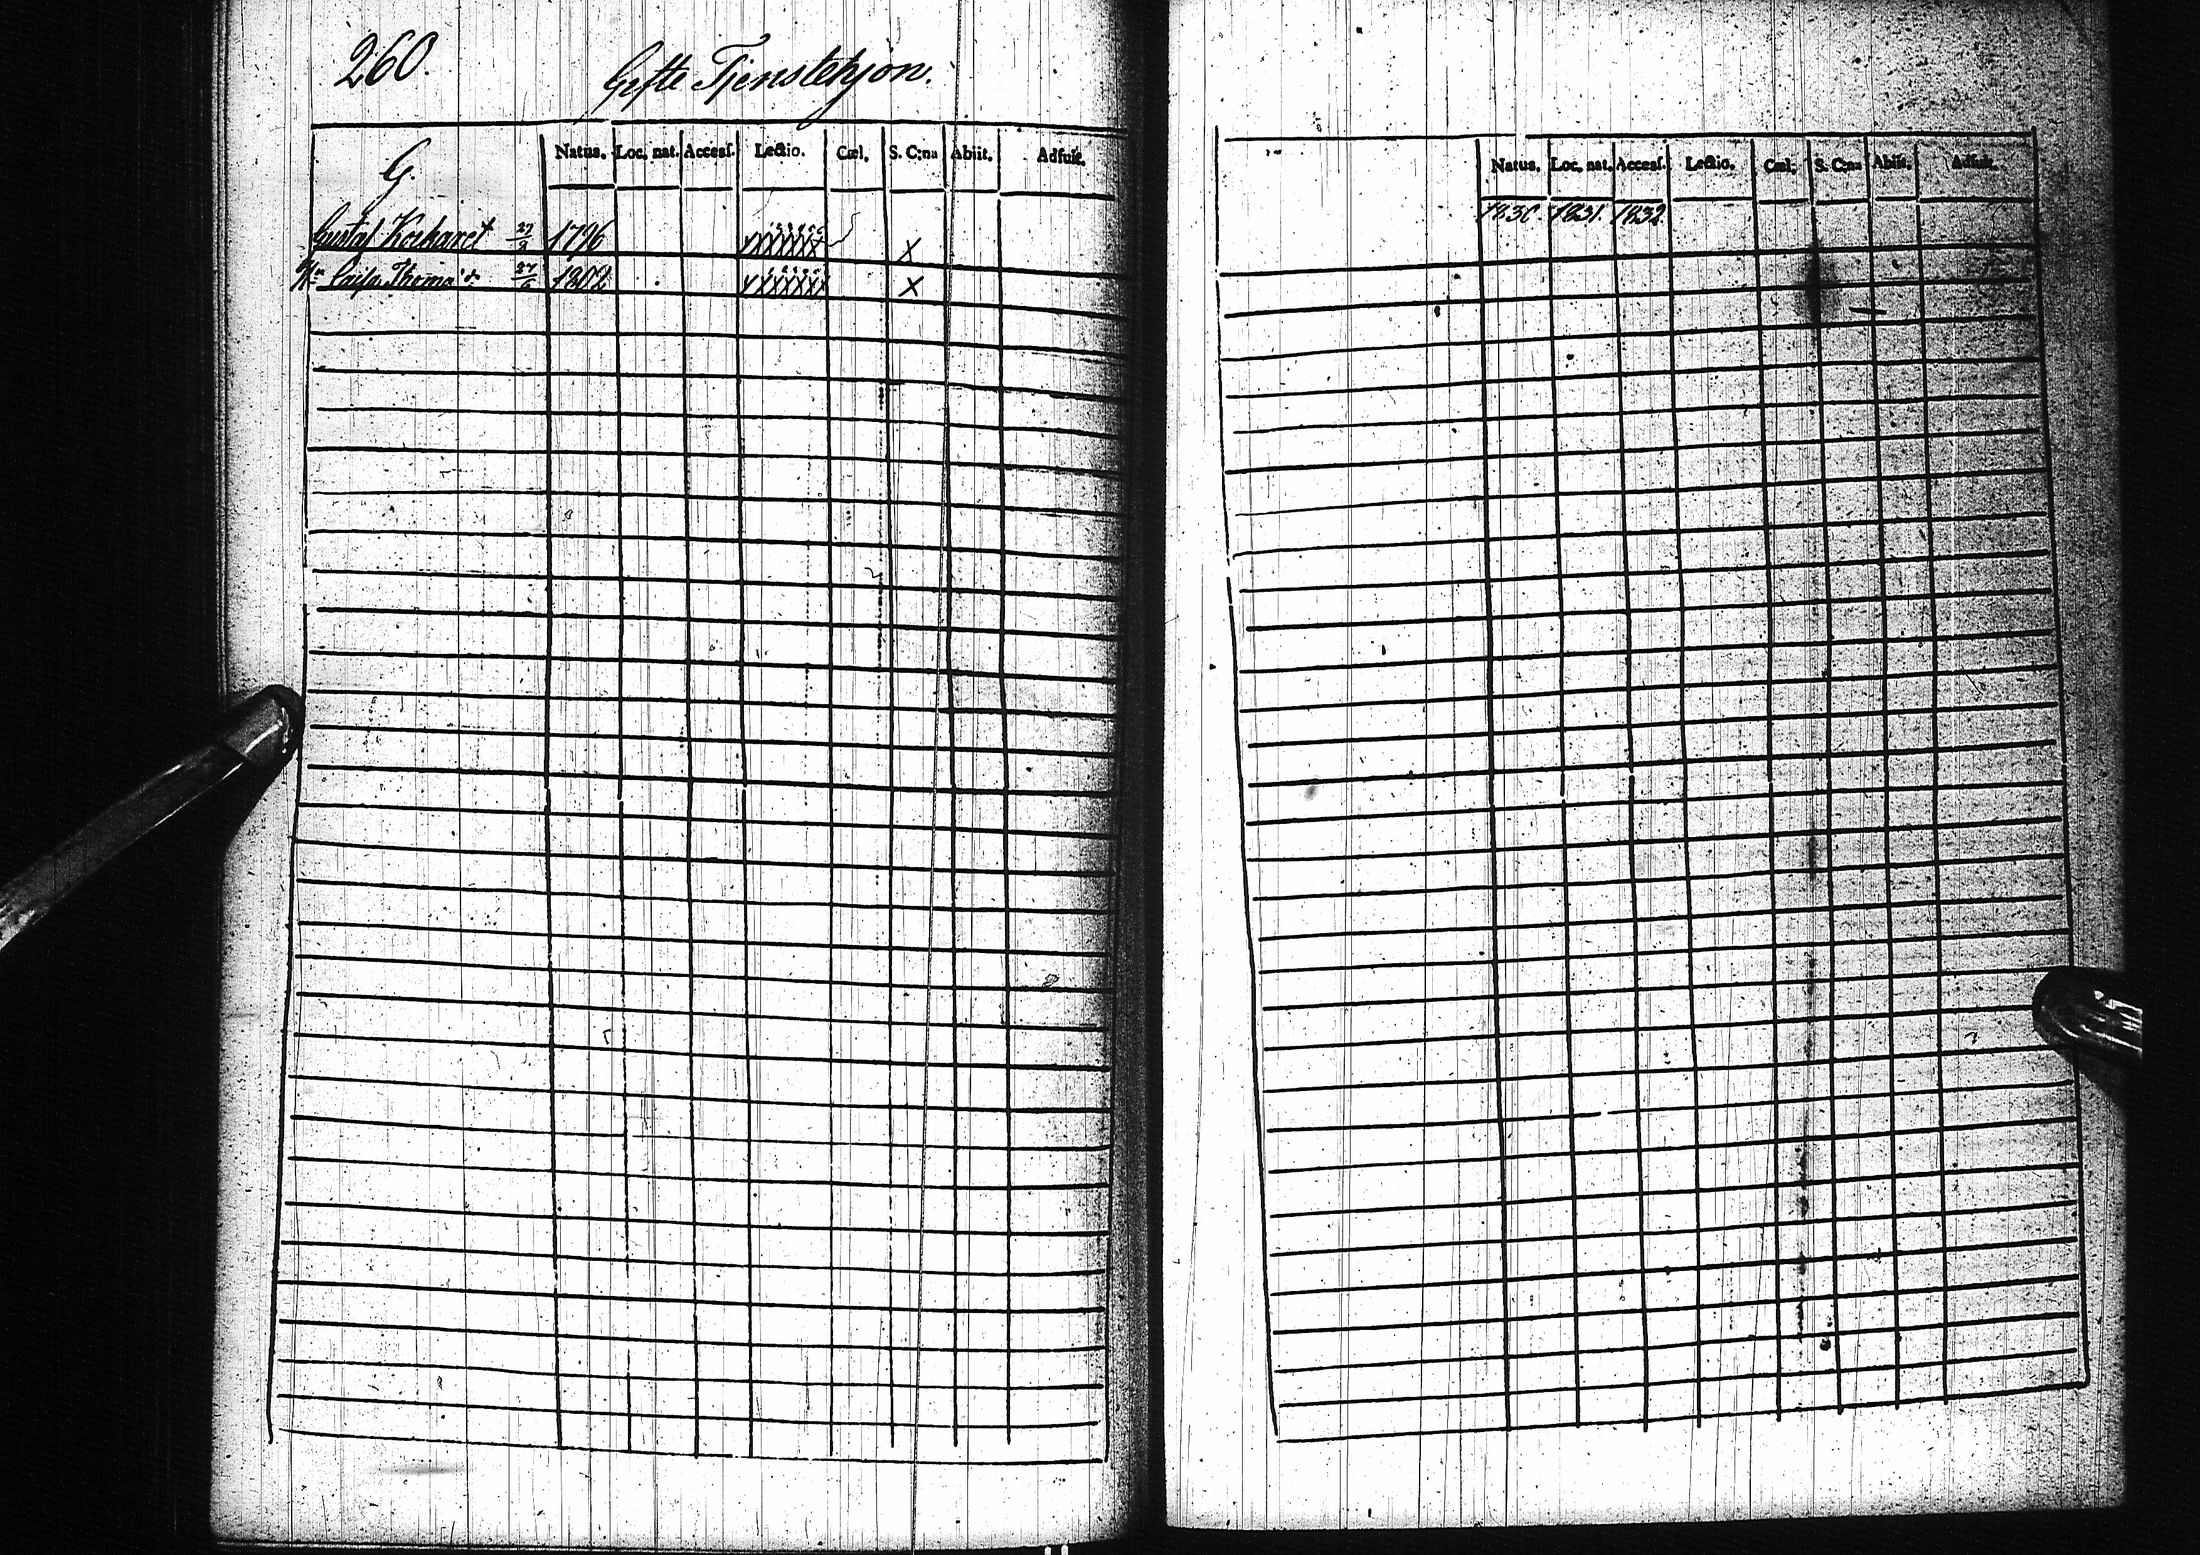 260.
Gifte Tjenstehjon.
G.
Natus. Loc. nat. Access. Lectio. Cœl. S. C:na Abiit. Adfuit.
Gustaf 27/9 1796 x
Hu Caisa Thomasdr 27/6 1802 x
Natus. Loc. nat. Access. Lectio. Cœl. S. C:na Abiit. Adfuit.
1830 1831 1832